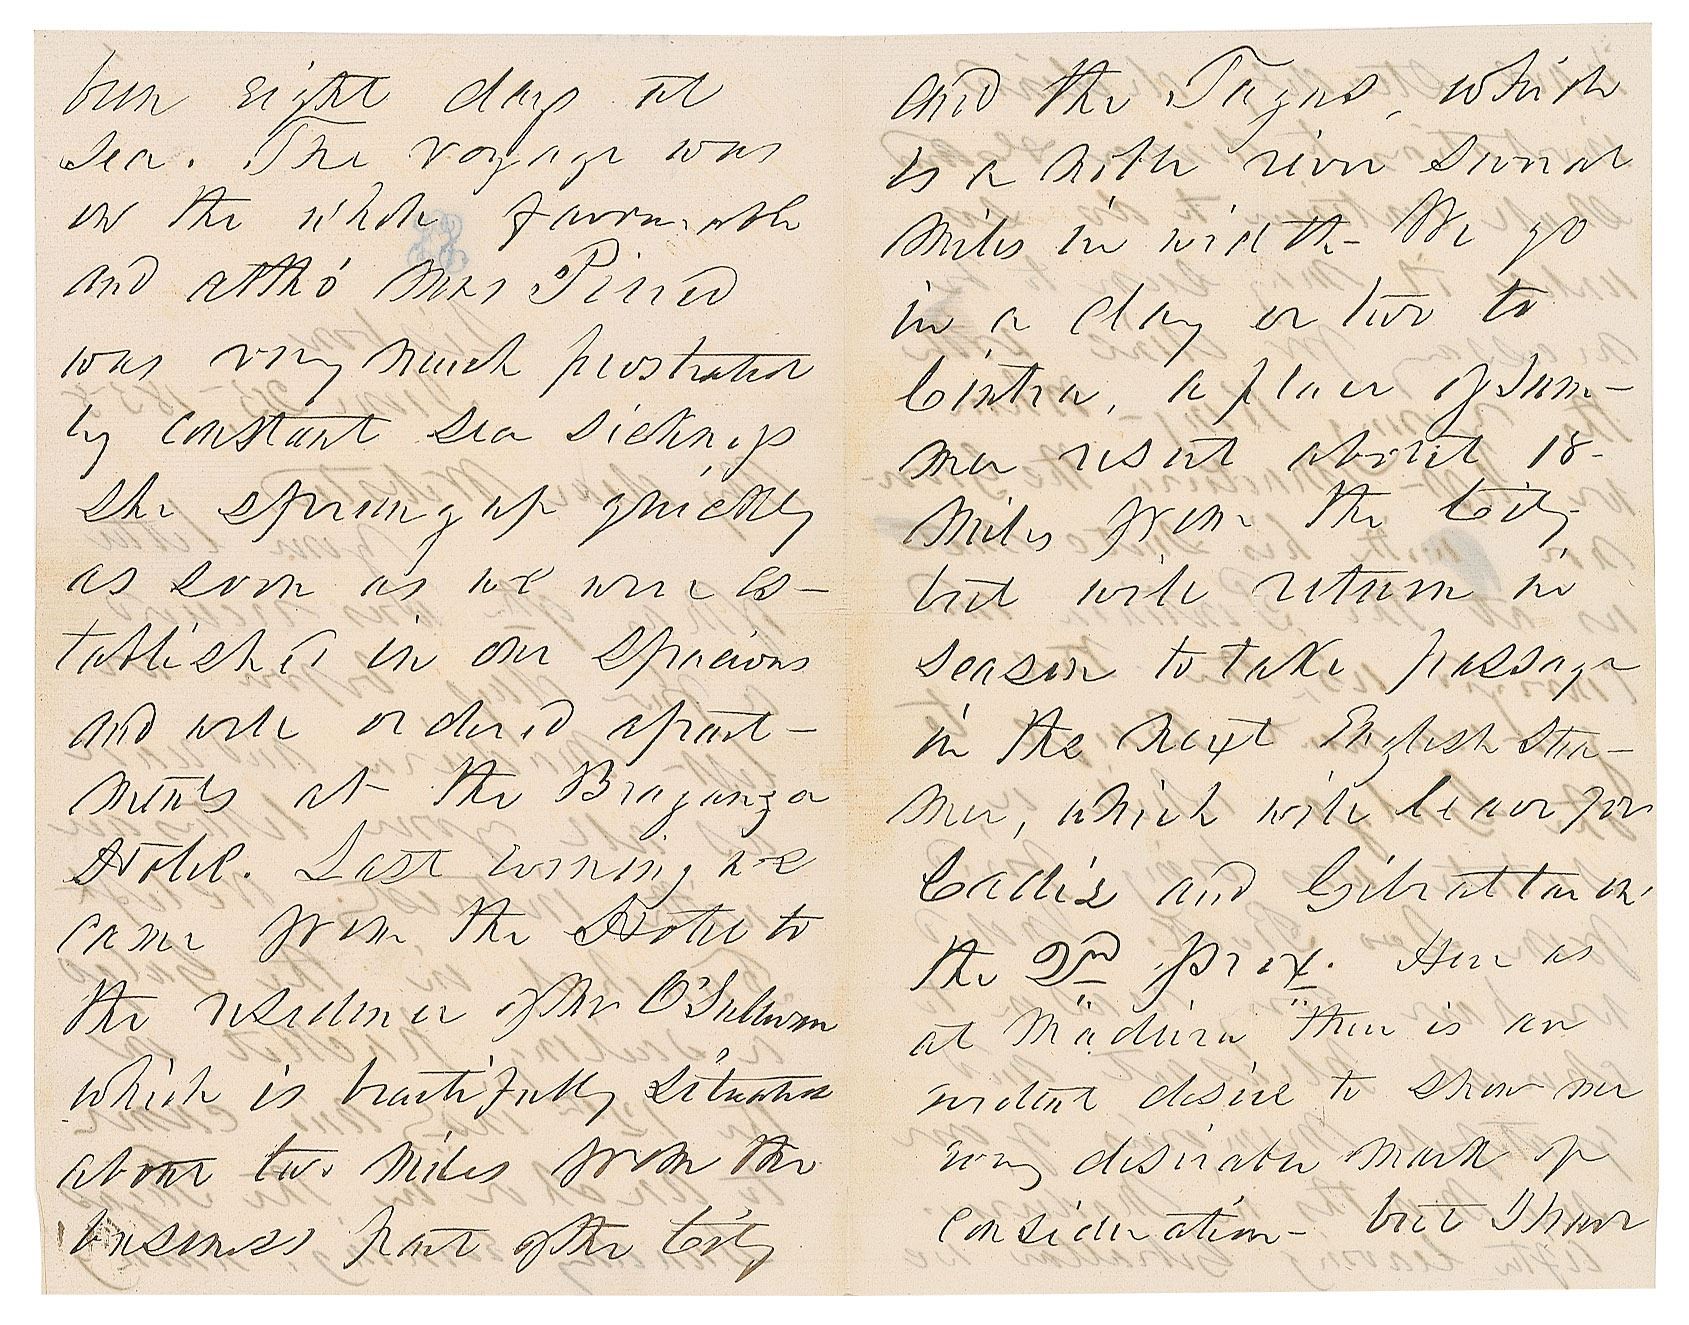 been eight days at
sea. The voyage was
on the whole favourable
and altho' Mrs Pierce
was very much prostrated
by constant sea sickness
she sprung up quickly
as soon as we were es-
tablished in our spacious
and well ordered apart-
ments at the Braganza
Hotel. Last evening we
came from the Hotel to
the residence of Mr O'Sullivan
which is beautifully situated
about two miles from the
business part of the City
and the Tagus, which
is a noble river several
miles in width - We go
in a day or two to
Cintra, a place of Sum-
mer resort about 18-
miles from the City
but will return in
season to take passage
in the next English Stea-
mer, which will leave for
Cadiz and Gibraltar on
the 2nd prox. Here as
at "Madeira" there is an
evident desire to show me
every desirable mark of
consideration - but I have